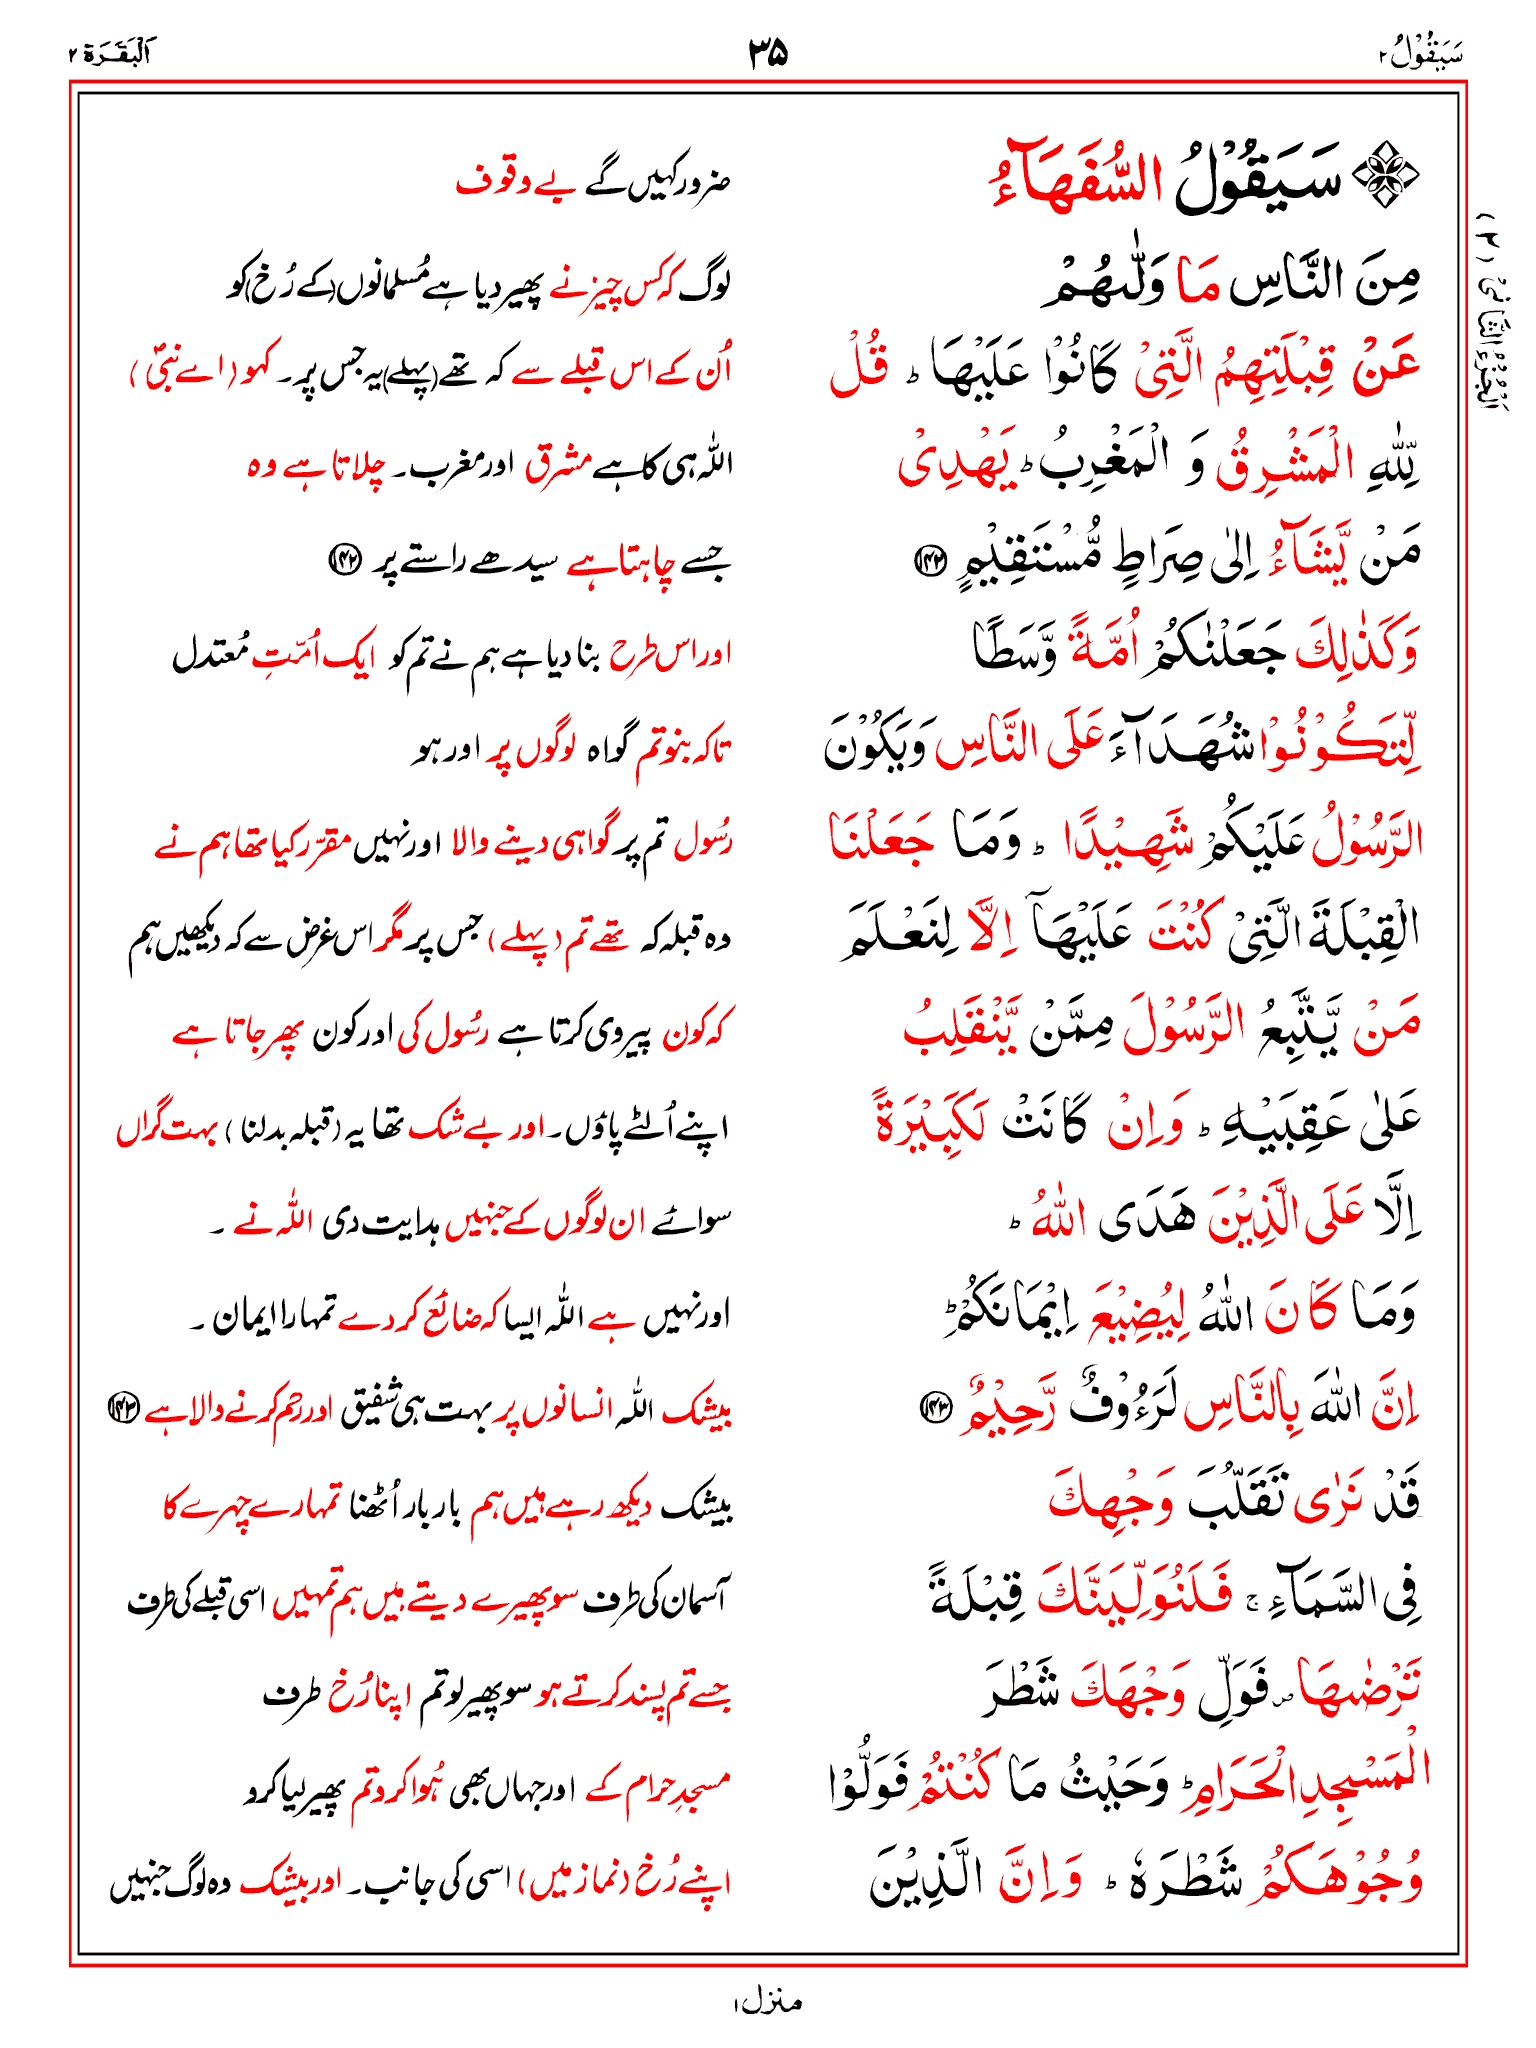 سَيَقُوْلُ ٢ ٣٥ اَلْبَقَرَة ٢
اَلْجُزْءُ الثَّانِیْ (٢)
سَيَقُوْلُ السُّفَهَآءُ ضرور کہیں گے بے وقوف
مِنَ النَّاسِ مَا وَلّٰىهُمْ لوگ کہ کس چیز نے پھیر دیا ہے مُسلمانوں (کے رُخ) کو
عَنْ قِبْلَتِهِمُ الَّتِىْ كَانُوْا عَلَيْهَا ؕ قُلْ اُن کے اس قبلے سے کہ تھے (پہلے) یہ جس پر۔ کہو (اے نبیؐ)
لِّلّٰهِ الْمَشْرِقُ وَ الْمَغْرِبُ ؕ يَهْدِىْ اللہ ہی کا ہے مشرق اور مغرب۔ چلاتا ہے وہ
مَنْ يَّشَآءُ اِلٰى صِرَاطٍ مُّسْتَقِيْمٍ ۱۴۲ جسے چاہتا ہے سیدھے راستے پر ۱۴۲
وَكَذٰلِكَ جَعَلْنٰكُمْ اُمَّةً وَّسَطًا اور اس طرح بنا دیا ہے ہم نے تم کو ایک اُمّتِ مُعتدل
لِّتَكُوْنُوْا شُهَدَآءَ عَلَى النَّاسِ وَيَكُوْنَ تاکہ بنو تم گواہ لوگوں پر اور ہو
الرَّسُوْلُ عَلَيْكُمْ شَهِيْدًا ؕ وَمَا جَعَلْنَا رسُول تم پر گواہی دینے والا اور نہیں مقرّر کیا تھا ہم نے
الْقِبْلَةَ الَّتِىْ كُنْتَ عَلَيْهَآ اِلَّا لِنَعْلَمَ وہ قبلہ کہ تھے تم (پہلے) جس پر مگر اس غرض سے کہ دیکھیں ہم
مَنْ يَّتَّبِعُ الرَّسُوْلَ مِمَّنْ يَّنْقَلِبُ کہ کون پیروی کرتا ہے رسُول کی اور کون پھر جاتا ہے
عَلٰى عَقِبَيْهِ ؕ وَاِنْ كَانَتْ لَكَبِيْرَةً اپنے اُلٹے پاؤں۔ اور بے شک تھا یہ (قبلہ بدلنا) بہت گراں
اِلَّا عَلَى الَّذِيْنَ هَدَى اللّٰهُ ؕ سوائے ان لوگوں کے جنہیں ہدایت دی اللہ نے ۔
وَمَا كَانَ اللّٰهُ لِيُضِيْعَ اِيْمَانَكُمْ ؕ اور نہیں ہے اللہ ایسا کہ ضائع کر دے تمہارا ایمان ۔
اِنَّ اللّٰهَ بِالنَّاسِ لَرَءُوْفٌ رَّحِيْمٌ ۱۴۳ بیشک اللہ انسانوں پر بہت ہی شفیق اور رحم کرنے والا ہے ۱۴۳
قَدْ نَرٰى تَقَلُّبَ وَجْهِكَ بیشک دیکھ رہے ہیں ہم بار بار اُٹھنا تمہارے چہرے کا
فِى السَّمَآءِ ۚ فَلَنُوَلِّيَنَّكَ قِبْلَةً آسمان کی طرف سو پھیرے دیتے ہیں ہم تمہیں اسی قبلے کی طرف
تَرْضٰىهَا ۪ فَوَلِّ وَجْهَكَ شَطْرَ جسے تم پسند کرتے ہو سو پھیر لو تم اپنا رُخ طرف
الْمَسْجِدِ الْحَرَامِ ؕ وَحَيْثُ مَا كُنْتُمْ فَوَلُّوْا مسجدِ حرام کے اور جہاں بھی ہُوا کرو تم پھیر لیا کرو
وُجُوْهَكُمْ شَطْرَهٗ ؕ وَاِنَّ الَّذِيْنَ اپنے رُخ (نماز میں) اسی کی جانب۔ اور بیشک وہ لوگ جنہیں
منزل ١